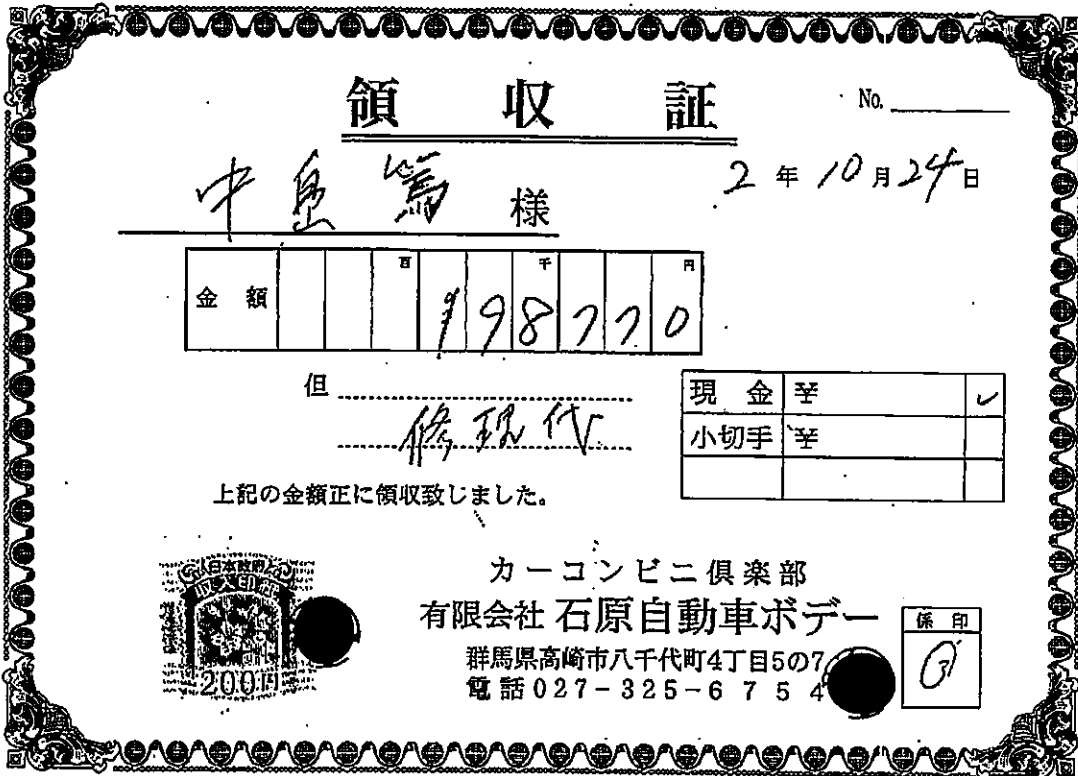 領 収 証
No.
中島篤 様
2 年 10 月 24 日
金 額 百 千 円
198770
但
修理代
現 金 ¥ ✓
小切手 ¥
上記の金額正に領収致しました。
日本政府
収入印紙
200円
カーコンビニ倶楽部
有限会社 石原自動車ボデー
群馬県高崎市八千代町4丁目5の7
電話 027-325-6754
係 印